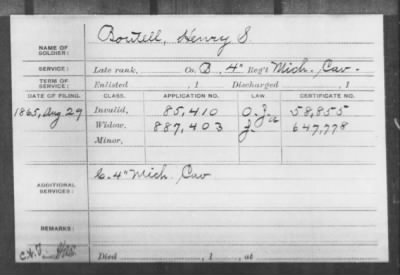 NAME OF SOLDIER: Boutell, Henry S
SERVICE: Late rank, Co. B, 4" Reg't Mich. Cav.
TERM OF SERVICE: Enlisted , 1 Discharged , 1
DATE OF FILING. CLASS. APPLICATION NO. LAW CERTIFICATE NO.
1865, Aug 29 Invalid, 85,410 58,855
Widow, 887,403 647,778
Minor,
ADDITIONAL SERVICES: C. 4" Mich. Cav
REMARKS:
Died , 1 , at